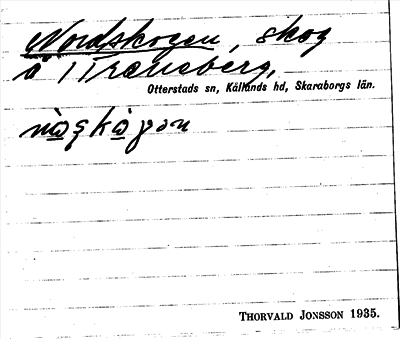 Nordskogen, skog
å Traneberg,
Otterstads sn, Kållands hd, Skaraborgs län.
THORVALD JONSSON 1935.